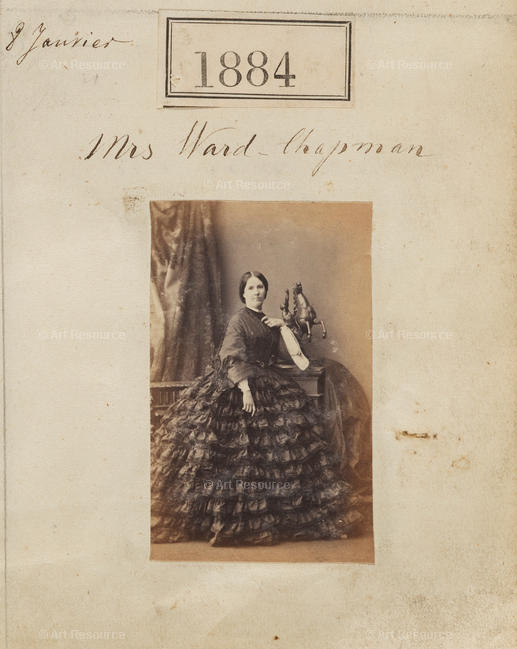 8 Janvier
1884
Mrs Ward-Chapman
© Art Resource
© Art Resource
© Art Resource
© Art Resource
© Art Resource
© Art Resource
© Art Resource
© Art Resource
© Art Resource